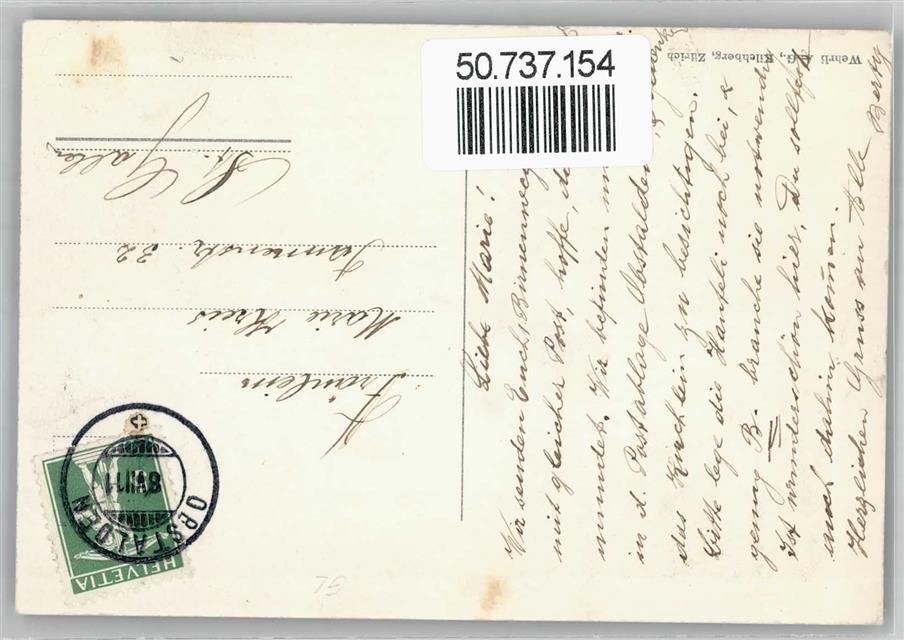 50.737.154
Wehrli A. G., Kilchberg, Zürich
Liebe Marie!
Wir senden Euch, Birnenweg
mit gleicher Post, hoffe,
mundet. Wir befinden
in d. Postablage Obstalden,
das Kirchlein zu besichtigen.
Bitte lege die Hanteli noch bei, &
genug B. brauche sie notwendig
Ist wunderschön hier, Du solltest
auch dahin kommen
Herzlichen Gruss an Alle Berty
Fräulein
Marie Kreis
Tannenstr. 32
St. Gallen
OBSTALDEN
8.VII.11
HELVETIA
GL